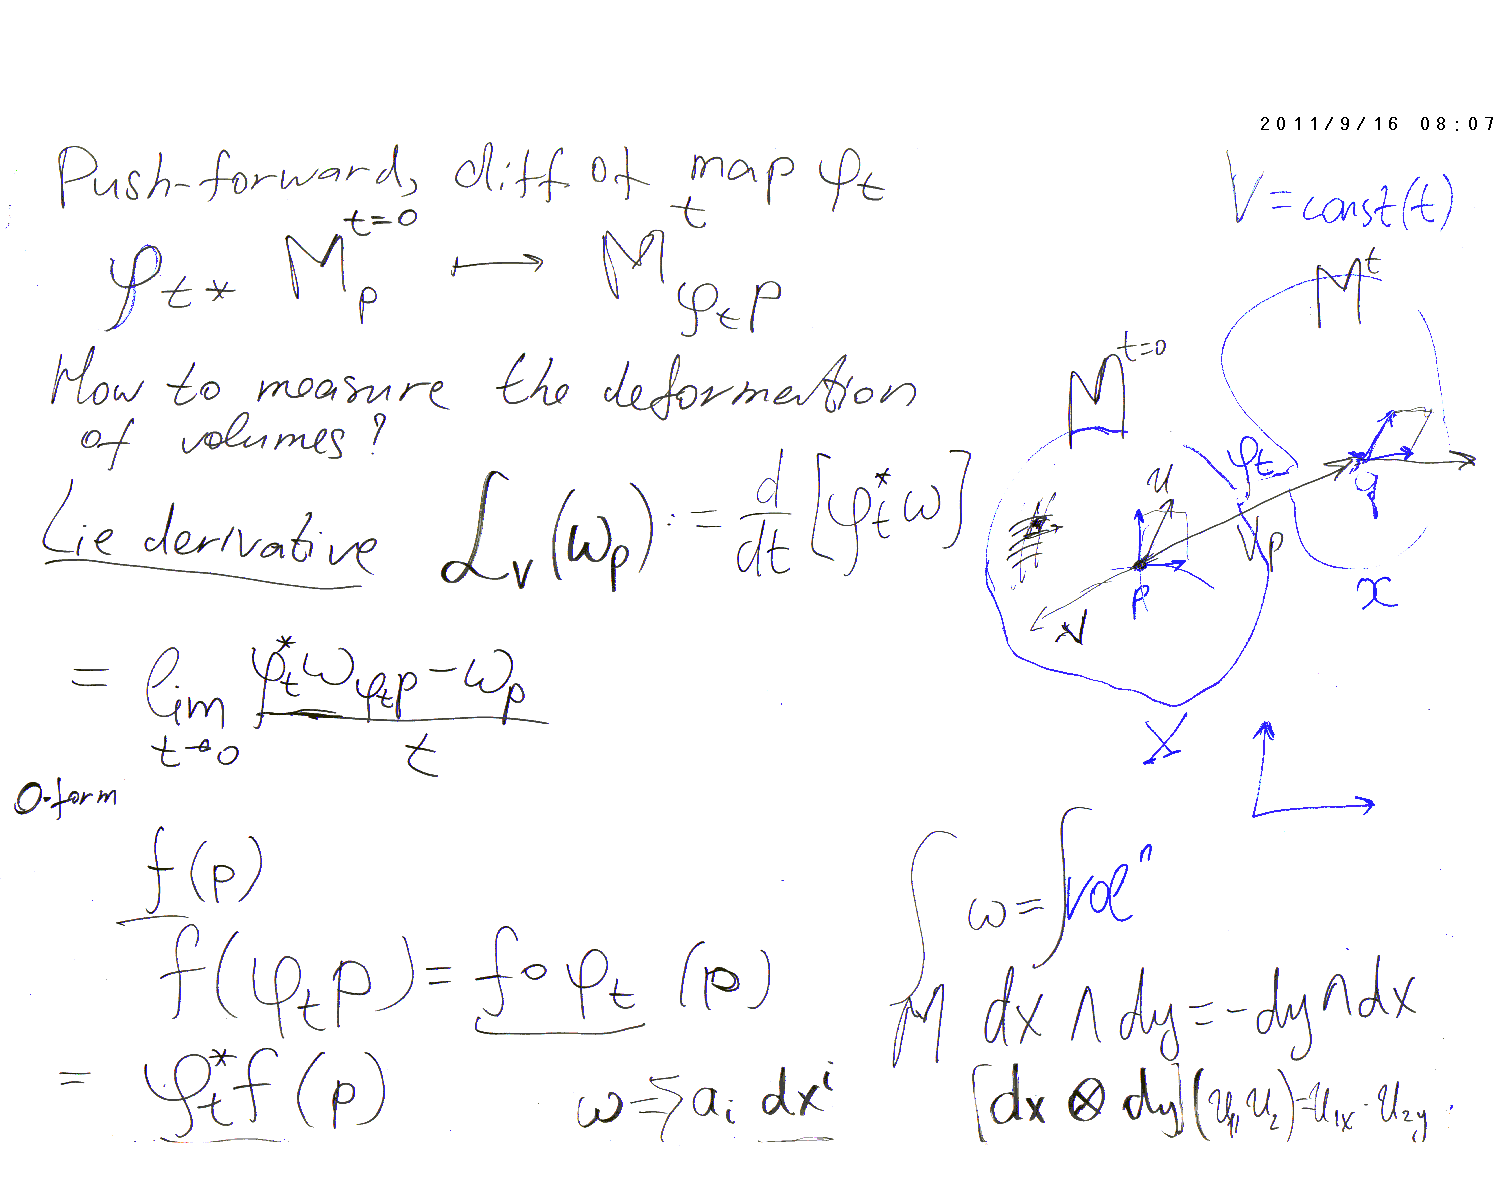 2011/9/16 08:07
Push-forward, diff of map φₜ
φₜ* Mₚ^{t=0} ⟼ M^t_{φₜp}
How to measure the deformation
of volumes?
Lie derivative ℒ_v(ωₚ) := d/dt [φₜ*ω]
= lim_{t→0} (φₜ*ω_{φₜp} − ωₚ)/t
0-form
f(p)
f(φₜp) = f∘φₜ (p)
= φₜ*f(p)
ω = Σ aᵢ dxⁱ
V = const(t)
M^t
M^{t=0}
φₜ
u
q
Vₚ
p
V
x
X
∫_M ω = ∫ volⁿ
dx ∧ dy = −dy ∧ dx
[dx ⊗ dy](u₁, u₂) = u₁ₓ · u₂ᵧ